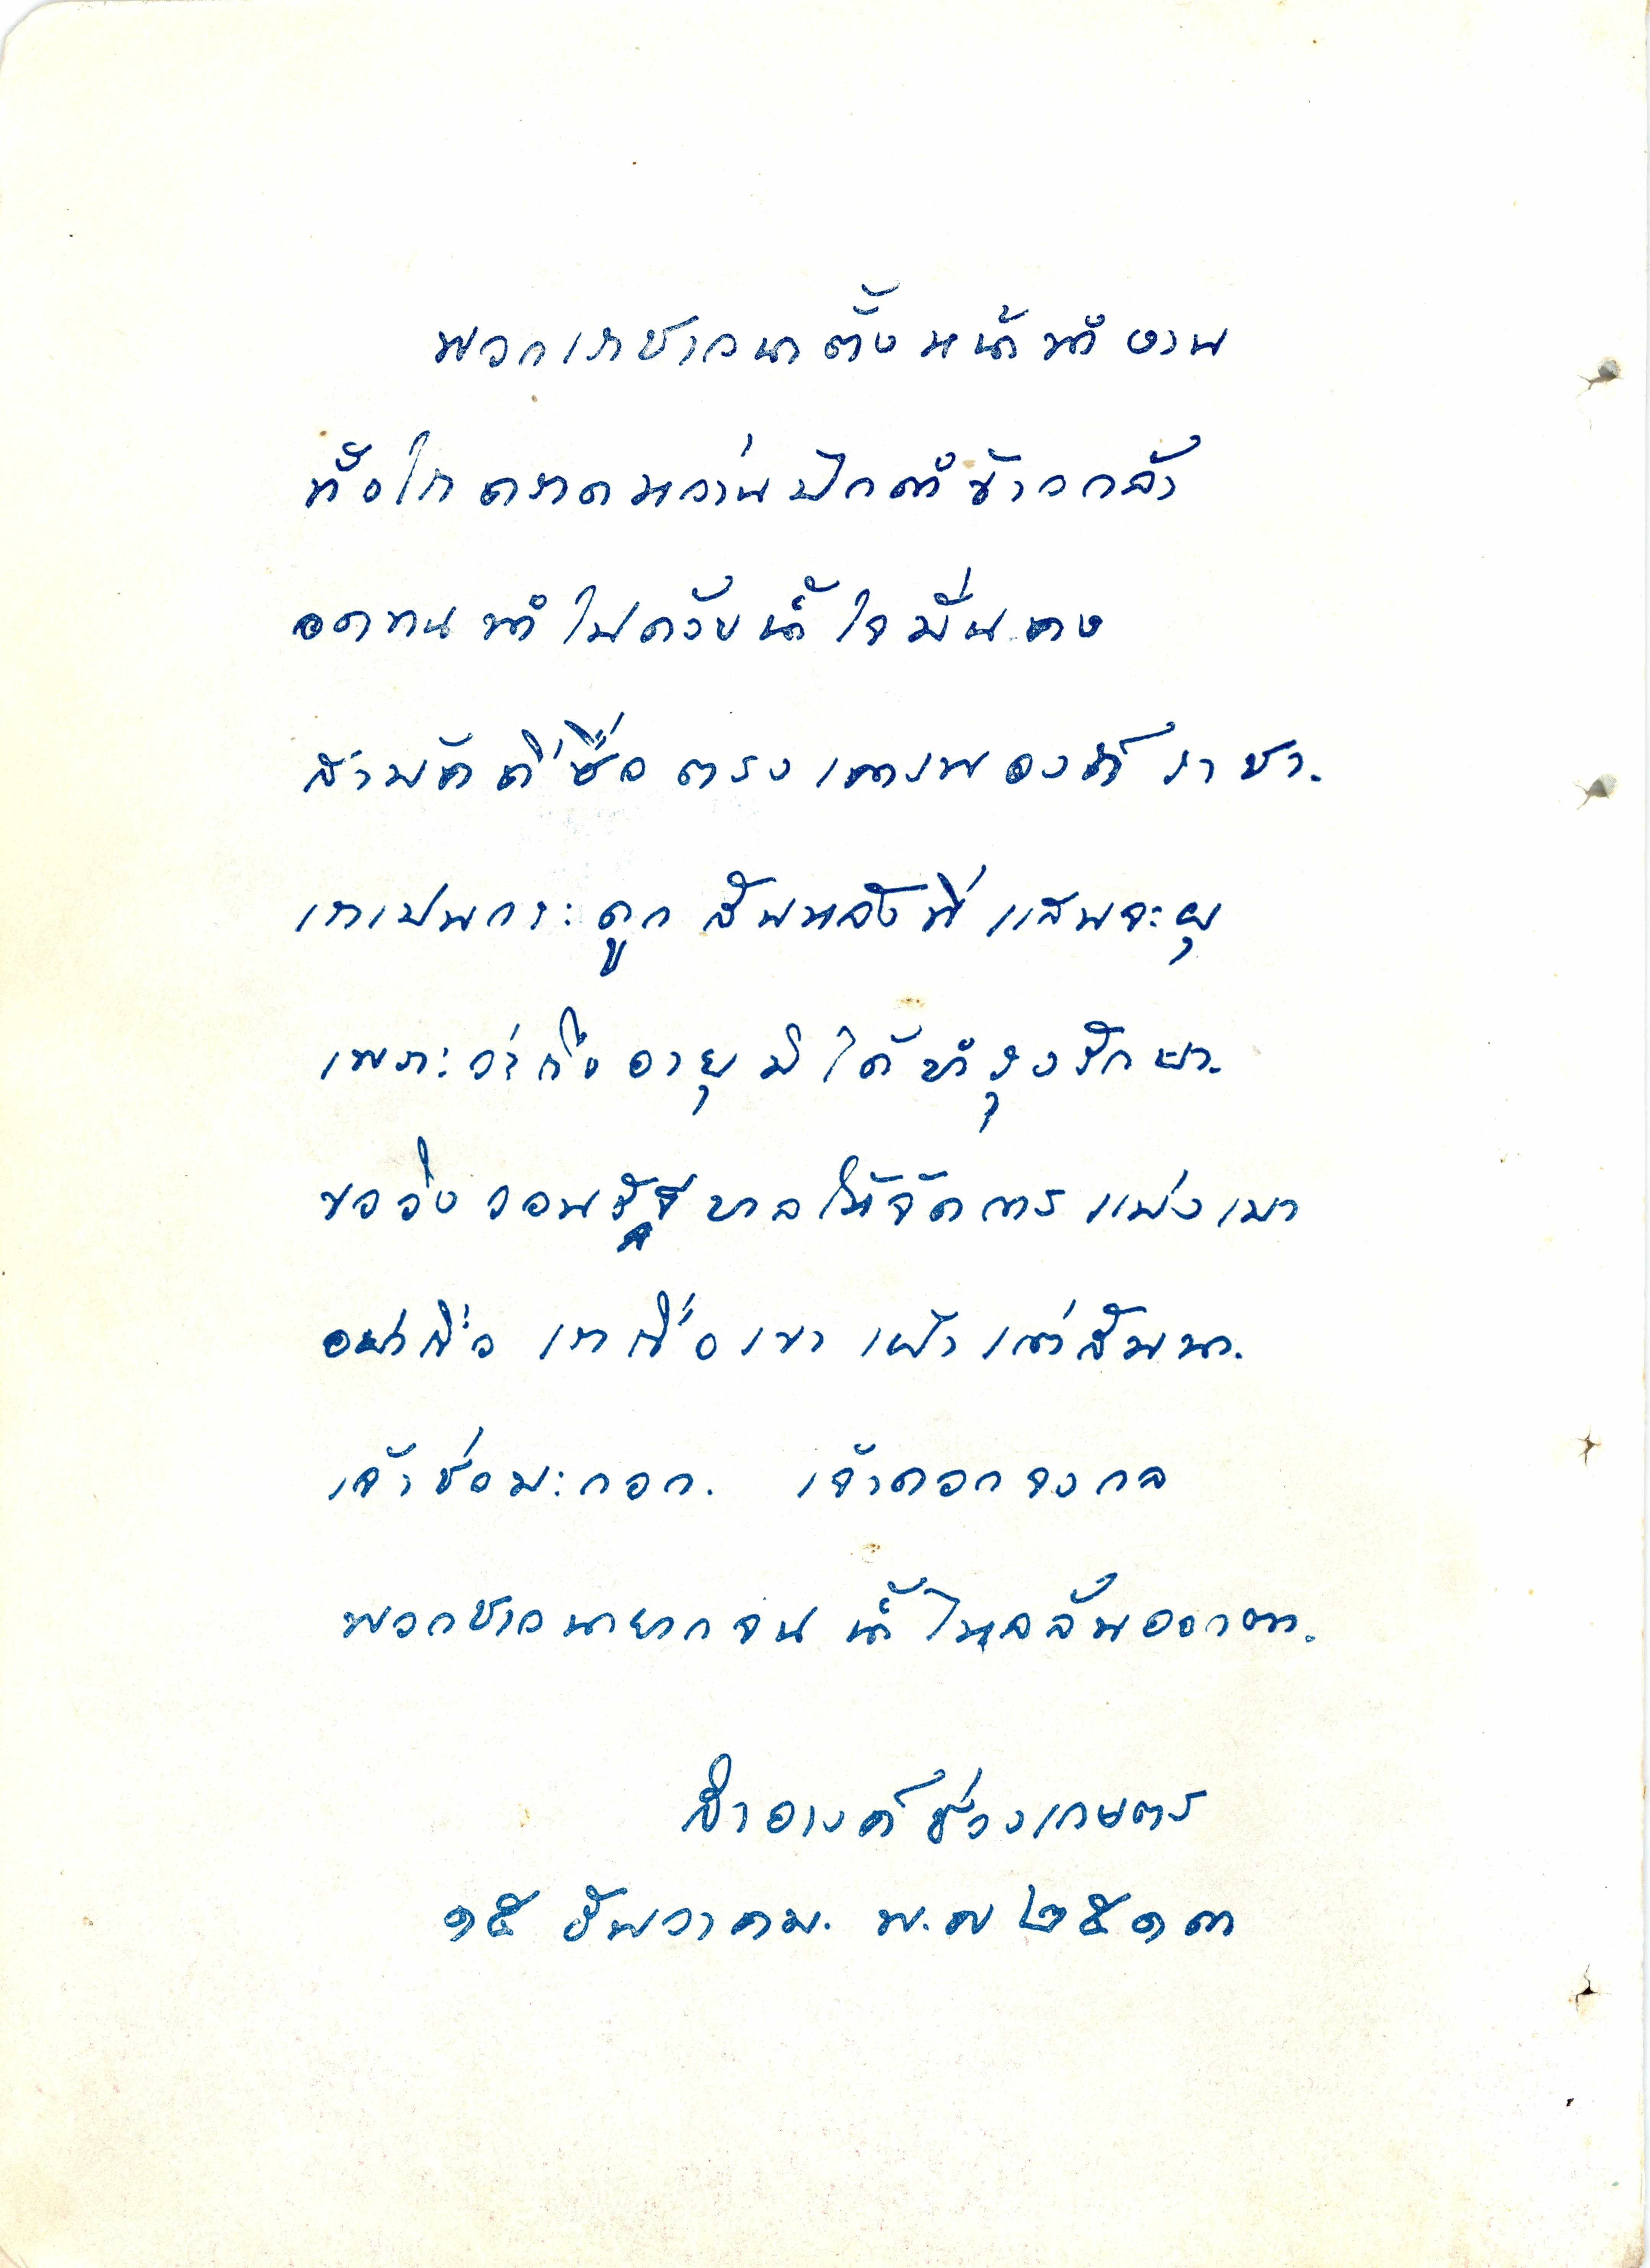 พวกเราชาวนาตั้งหน้าทำงาน
ทั้งไถคราดหว่านปักดำข้าวกล้า
อดทนทำไปด้วยน้ำใจมั่นคง
สามัคคีซื่อตรงเคารพองค์ราชา.
เราเปนกระดูกสันหลังที่แสนจะผุ
เพราะว่าถึงอายุมิได้บำรุงรักษา.
ขอวิงวอนรัฐบาลให้จัดการแบ่งเบา
อย่าถือเราถือเขาเฝ้าแต่สัมนา.
เจ้าช่อมะกอก. เจ้าดอกจงกล
พวกชาวนายากจนน้ำไหลล้นออกตา.
สำอางค์ ช่วงเกษตร
๑๕ ธันวาคม. พ.ศ ๒๕๑๓